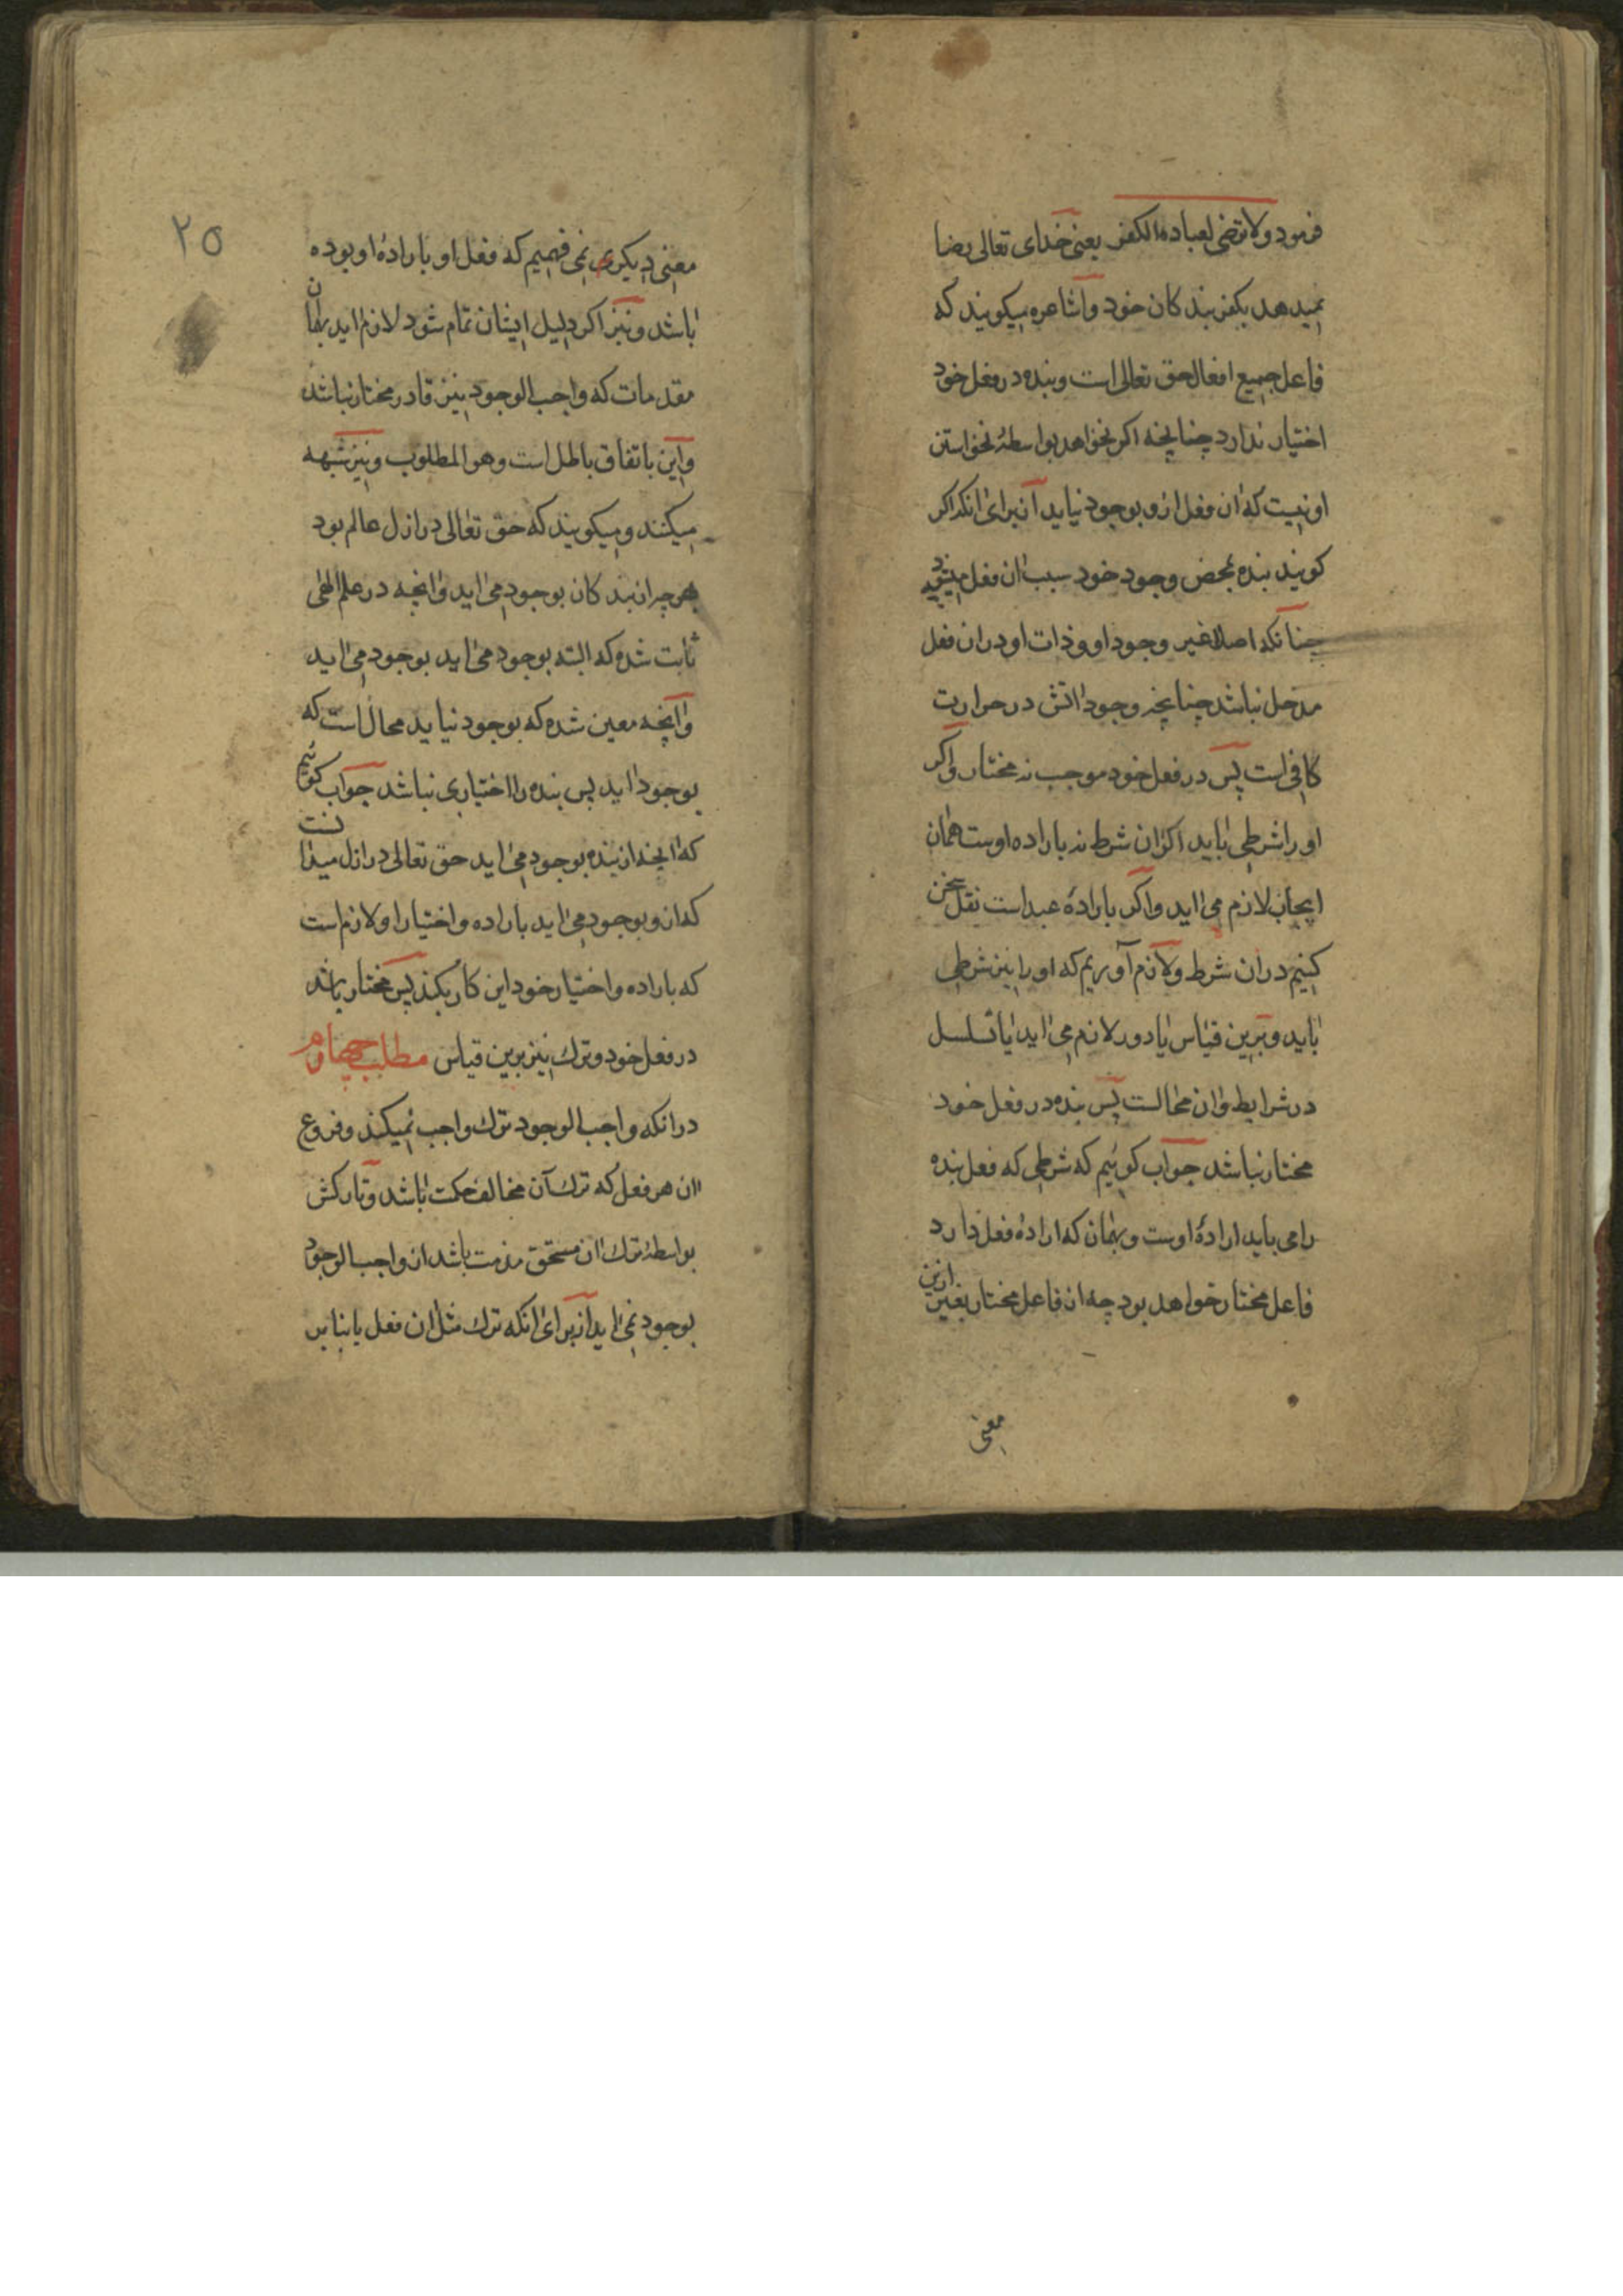 فرمود ولا ترضی لعباده الکفر یعنی خدای تعالی رضا
نمیدهد بکفر بندکان خود واشاعره میکویند که
فاعل جمیع افعال حق تعالی است وبنده در فعل خود
اختیار ندارد چنانچه اکر نخواهد بواسطهٔ نخواستن
او نیست که ان فعل ازو بوجود نیاید از برای انکه اکر
کویند بنده بمحض وجود خود سبب ان فعل میشود
چنانکه اصلا غیر وجود او وذات او در ان فعل
مدخل نباشد چنانچه وجود اتش در حرارت
کافی است پس در فعل خود موجب نه مختار واکر
او را شرطی باید اکر ان شرط نه باراده اوست همان
ایجاب لازم می اید واکر بارادهٔ عبد است نقل سخن
کنیم در ان شرط ولازم آوریم که او را نیز شرطی
باید وبرین قیاس یا دور لازم می اید یا تسلسل
در شرایط وان محالست پس بنده در فعل خود
مختار نباشد جواب کوئیم که شرطی که فعل بنده
را می باید ارادهٔ اوست وبهمان که ارادهٔ فعل دارد
فاعل مختار خواهد بود چه از فاعل مختار بغیر ازین
معنی
۲۵
معنی دیکری نمی فهمیم که فعل او بارادهٔ او بوده
باشد ونیز اکر دلیل ایشان تمام شود لازم اید بهمان
مقدمات که واجب الوجود نیز قادر مختار نباشد
واین باتفاق باطل است وهو المطلوب ونیز شبهه
میکنند ومیکویند که حق تعالی در ازل عالم بود
هرچه از بندکان بوجود می اید وانچه در علم الهی
ثابت شده که البته بوجود می اید بوجود می اید
وانچه معین شده که بوجود نیاید محال است که
بوجود اید پس بنده را اختیاری نباشد جواب کوئیم
که انچه از بنده بوجود می اید حق تعالی در ازل میدانست
که ازو بوجود می اید باراده واختیار او لازم است
که باراده واختیار خود این کار بکند پس مختار باشد
در فعل خود وترك نیز برین قیاس مطلب چهارم
در انکه واجب الوجود ترك واجب نمیکند وفروع
ان هر فعل که ترك آن مخالف حکمت باشد وتارکش
بواسطهٔ ترك ان مستحق مذمت باشد از واجب الوجود
بوجود نمی اید از برای انکه ترك مثل ان فعل یا بنابر